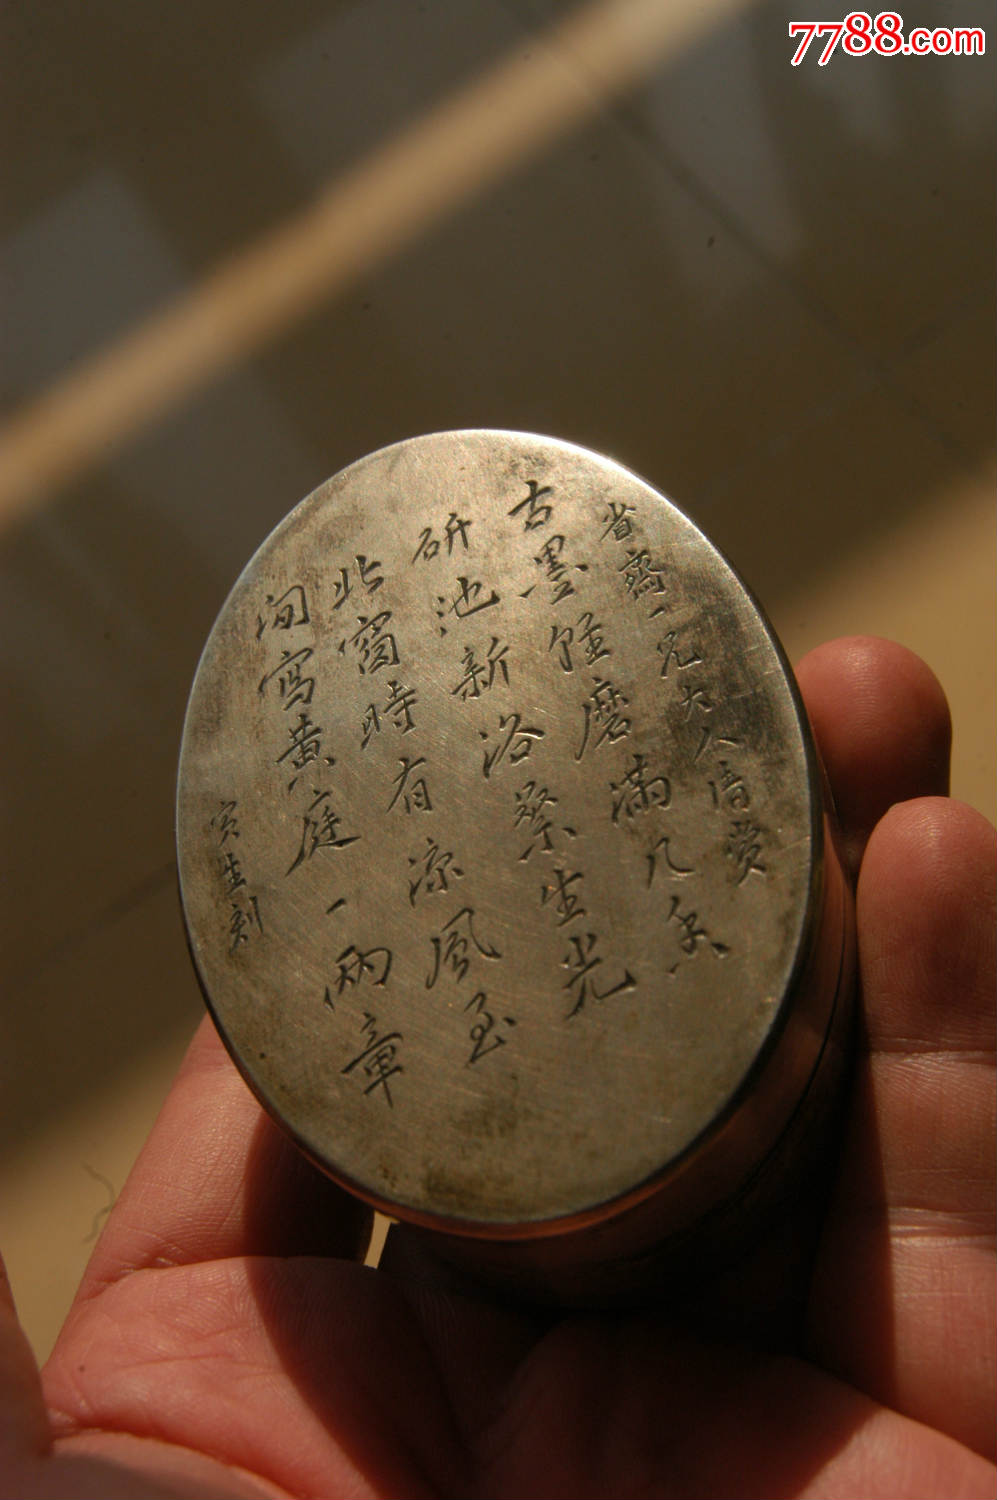 7788.com
省齋一兄大人清赏
古墨輕磨滿几香
研池新浴粲生光
北窗時有涼風至
闲寫黄庭一兩章
寅生刻